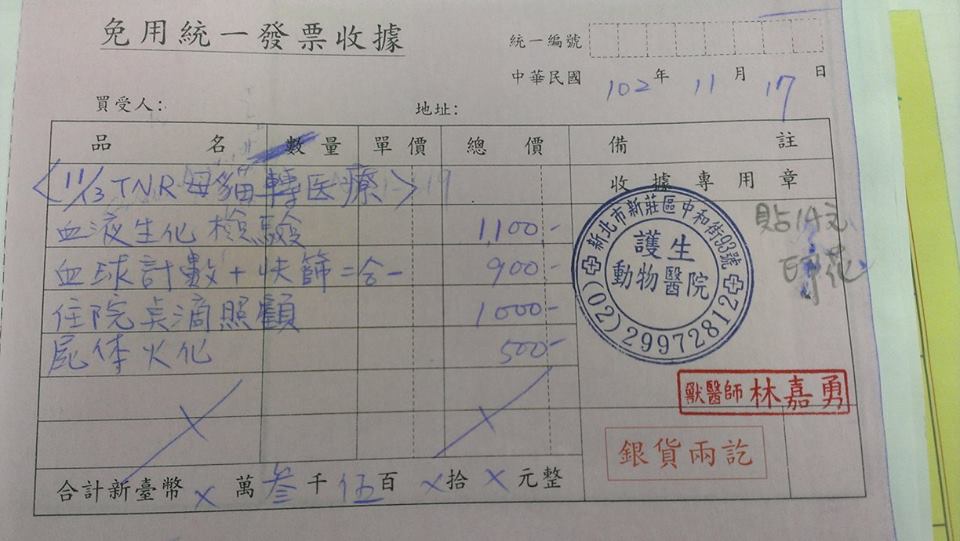 免用統一發票收據
統一編號
中華民國 102 年 11 月 17 日
買受人: 地址:
品名 數量 單價 總價 備註
<11/13 TNR母貓轉医療>
收據專用章
血液生化檢驗 1,100-
血球計數+快篩二合一 900-
住院点滴照顧 1000-
屍体火化 500-
貼14元
印花
新北市新莊區中和街93號
護生
動物醫院
(02)29972812
獸醫師 林嘉勇
銀貨兩訖
合計新臺幣 x 萬 叁 千 伍 百 x 拾 x 元整